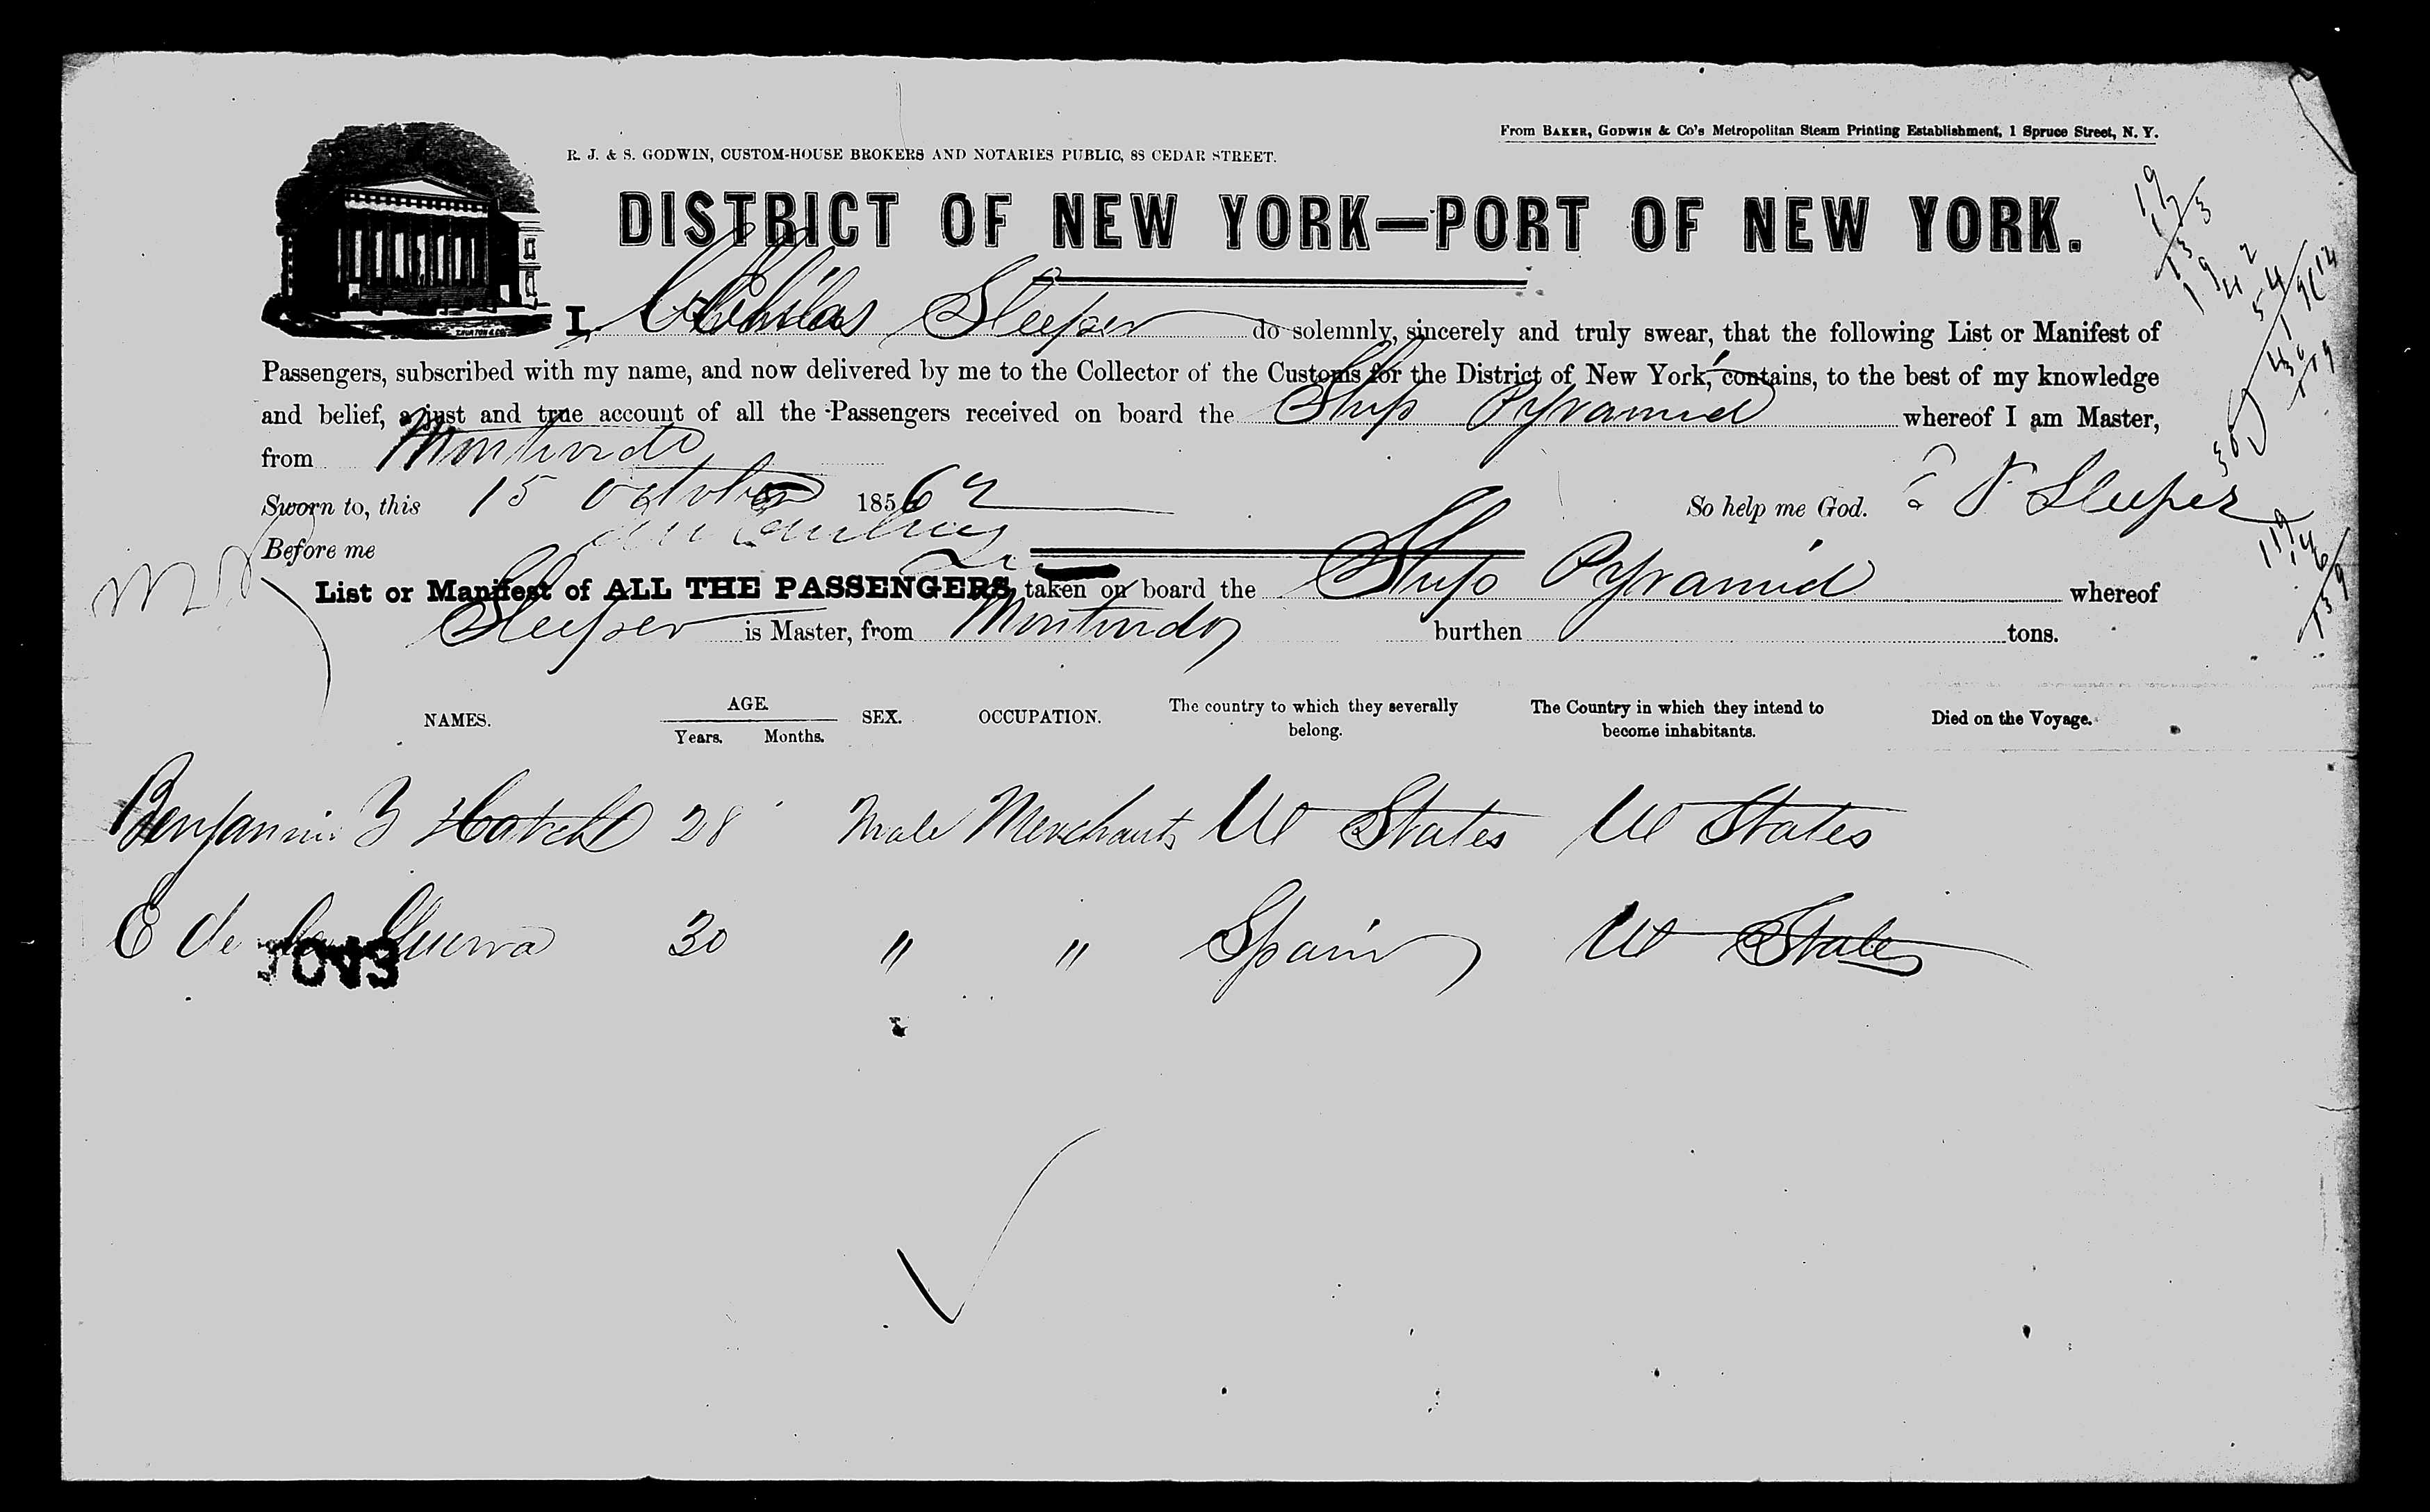 From BAKER, GODWIN & Co's Metropolitan Steam Printing Establishment, 1 Spruce Street, N. Y.
R. J. & S. GODWIN, CUSTOM-HOUSE BROKERS AND NOTARIES PUBLIC, 88 CEDAR STREET.
DISTRICT OF NEW YORK—PORT OF NEW YORK.
I, Sleeper do solemnly, sincerely and truly swear, that the following List or Manifest of
Passengers, subscribed with my name, and now delivered by me to the Collector of the Customs for the District of New York, contains, to the best of my knowledge
and belief, a just and true account of all the Passengers received on board the Ship Pyramid whereof I am Master,
from Montevideo
Sworn to, this 15 October 1862 So help me God. Sleeper
Before me
List or Manifest of ALL THE PASSENGERS taken on board the Ship Pyramid whereof
Sleeper is Master, from Montevideo burthen tons.
NAMES. AGE. Years. Months. SEX. OCCUPATION. The country to which they severally belong. The Country in which they intend to become inhabitants. Died on the Voyage.
Benjamin Hatch 28 Male Merchants U States U States
E de la Guerra 30 " " Spain U States